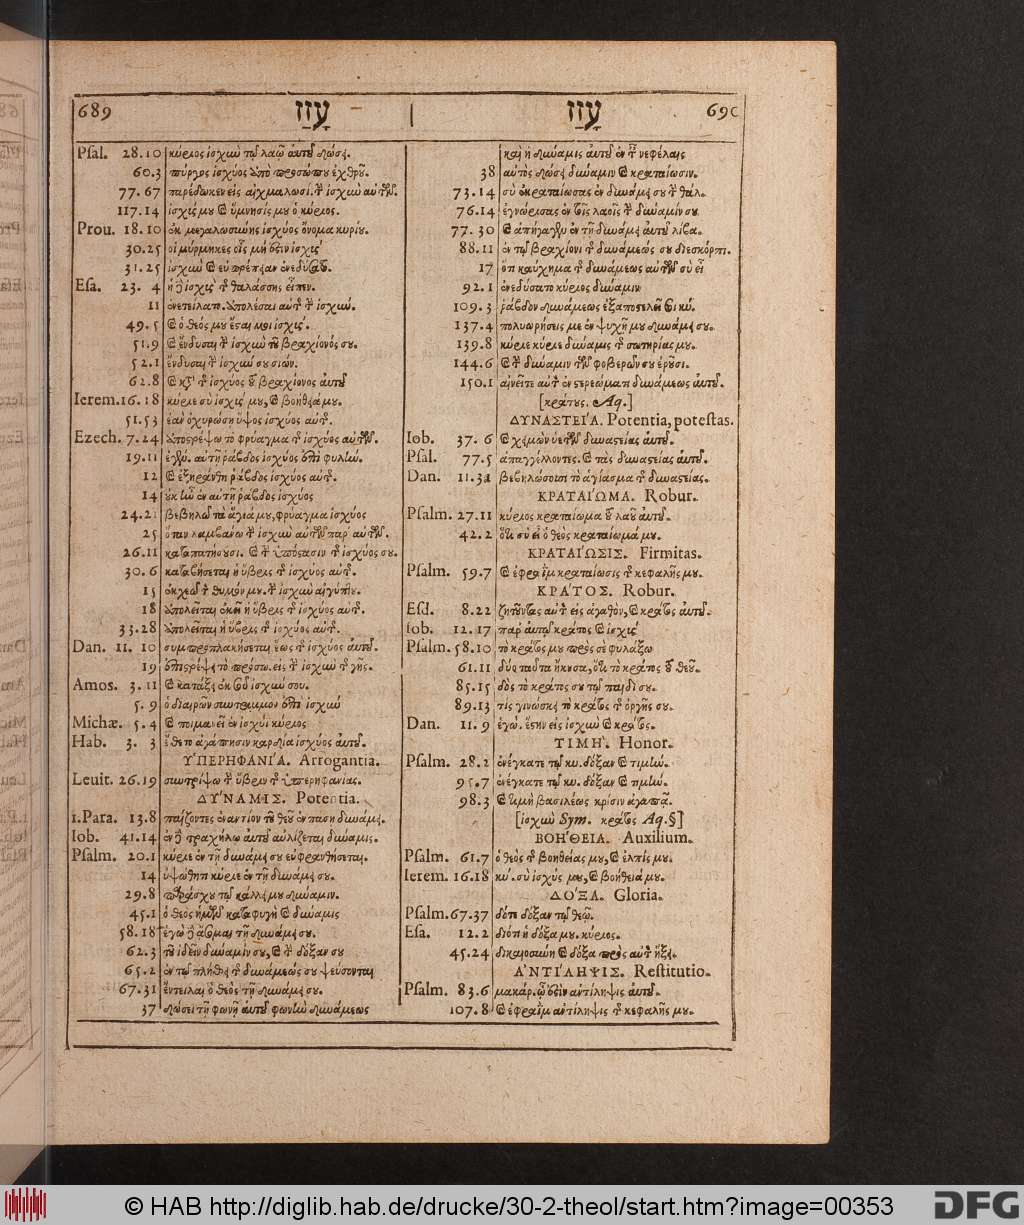 689 עָזַן עָזַן 690
Psal. 28.10 κύριος ἰσχὺν τῷ λαῷ αὐτοῦ δώσει.
60.3 πύργος ἰσχύος ἀπὸ προσώπου ἐχθροῦ.
77.67 παρέδωκεν εἰς αἰχμαλωσί. τὴν ἰσχὺν αὐτῶν.
117.14 ἰσχύς μου καὶ ὕμνησίς μου ὁ κύριος.
Prou. 18.10 ἐκ μεγαλωσύνης ἰσχύος ὄνομα κυρίου.
30.25 οἱ μύρμηκες οἷς μή ἐστιν ἰσχύς
31.25 ἰσχὺν καὶ εὐπρέπειαν ἐνεδύσατο.
Esa. 23. 4 ἡ δὲ ἰσχὺς τῆς θαλάσσης εἶπεν.
11 ἐνετείλατο. ἀπολέσαι αὐτῆς τὴν ἰσχύν.
49.5 καὶ ὁ θεός μου ἔσται μοι ἰσχύς.
51.9 καὶ ἔνδυσαι τὴν ἰσχὺν τοῦ βραχίονός σου.
52.1 ἔνδυσαι τὴν ἰσχύν σου σιών.
62.8 καὶ κατὰ τῆς ἰσχύος τοῦ βραχίονος αὐτοῦ
Ierem. 16.18 κύριε σὺ ἰσχύς μου, καὶ βοήθειά μου.
51.53 ἐὰν ὀχυρώσῃ ὕψος ἰσχύος αὐτῆς.
Ezech. 7.24 ἀποστρέψω τὸ φρύαγμα τῆς ἰσχύος αὐτῶν.
19.11 ἐγένε. αὐτῇ ῥάβδος ἰσχύος ἐπὶ φυλὴν.
12 καὶ ἐξηράνθη ῥάβδος ἰσχύος αὐτῆς.
14 οὐκ ἦν ἐν αὐτῇ ῥάβδος ἰσχύος
24.21 βεβηλῶ τὰ ἅγιά μου, φρύαγμα ἰσχύος
25 ὅταν λαμβάνω τὴν ἰσχὺν αὐτῶν παρ' αὐτῶν.
26.11 καταπατήσουσι. καὶ τὴν ὑπόστασιν τῆς ἰσχύος σου.
30.6 καταβήσεται ἡ ὕβρις τῆς ἰσχύος αὐτῆς.
15 ἐκχεῶ τὸν θυμόν μου. τὴν ἰσχὺν αἰγύπτου.
18 ἀπολεῖται ἐκεῖ ἡ ὕβρις τῆς ἰσχύος αὐτῆς.
33.28 ἀπολεῖται ἡ ὕβρις τῆς ἰσχύος αὐτῆς.
Dan. 11. 10 συμπροπλακήσεται ἕως τῆς ἰσχύος αὐτοῦ.
19 ἐπιστρέψει τὸ πρόσω. εἰς τὴν ἰσχὺν τῆς γῆς.
Amos. 3. 11 καὶ κατάξει ἐκ σοῦ ἰσχύν σου.
5. 9 ὁ διαιρῶν σύντριμμον ἐπὶ ἰσχὺν
Michæ. 5. 4 καὶ ποιμανεῖ ἐν ἰσχύϊ κύριος
Hab. 3. 3 ἔθετο ἀγάπησιν κραταιὰν ἰσχύος αὐτοῦ.
ΥΠΕΡΗΦΑΝΙ'Α. Arrogantia.
Leuit. 26.19 συντρίψω τὴν ὕβριν τῆς ὑπερηφανίας.
ΔΥ'ΝΑΜΙΣ. Potentia.
1.Para. 13.8 παίζοντες ἐναντίον τοῦ θεοῦ ἐν πάσῃ δυνάμει.
Iob. 41.14 ἐν δὲ τραχήλῳ αὐτοῦ αὐλίζεται δύναμις.
Psalm. 20.1 κύριε ἐν τῇ δυνάμει σου εὐφρανθήσεται.
14 ὑψώθητι κύριε ἐν τῇ δυνάμει σου.
29.8 παράσχου τῷ κάλλει μου δύναμιν.
45.1 ὁ θεὸς ἡμῶν καταφυγὴ καὶ δύναμις
58.18 ἐγὼ δὲ ᾄσομαι τῇ δυνάμει σου.
62.3 τοῦ ἰδεῖν δύναμίν σου, καὶ τὴν δόξαν σου
65.2 ἐν τῷ πλήθει τῆς δυνάμεώς σου ψεύσονται
67.31 ἔντειλαι ὁ θεὸς τῇ δυνάμει σου.
37 δώσει τῇ φωνῇ αὐτοῦ φωνὴν δυνάμεως
καὶ ἡ δύναμις αὐτοῦ ἐν ταῖς νεφέλαις
38 αὐτὸς δώσει δύναμιν καὶ κραταίωσιν.
73.14 σὺ ἐκραταίωσας ἐν δυνάμει σου τὴν θάλ.
76.14 ἐγνώρισας ἐν τοῖς λαοῖς τὴν δύναμίν σου
77. 30 καὶ ἐπήγαγεν ἐν τῇ δυνάμει αὐτοῦ λίβα.
88.11 ἐν τῷ βραχίονι τῆς δυνάμεώς σου διεσκόρπι.
17 ὅτι καύχημα τῆς δυνάμεως αὐτῶν σὺ εἶ
92.1 ἐνεδύσατο κύριος δύναμιν
109.3 ῥάβδον δυνάμεως ἐξαποστελεῖ σοι κύ.
137.4 πολυωρήσεις με ἐν ψυχῇ μου δυνάμει σου.
139.8 κύριε κύριε δύναμις τῆς σωτηρίας μου.
144.6 καὶ τὴν δύναμιν τῶν φοβερῶν σου ἐροῦσι.
150.1 αἰνεῖτε αὐτὸν ἐν στερεώματι δυνάμεως αὐτοῦ.
[κράτους. Aq.]
ΔΥΝΑΣΤΕΙ'Α. Potentia, potestas.
Iob. 37. 6 καὶ χειμὼν ὑετῶν δυναστείας αὐτοῦ.
Psal. 77.5 ἀπαγγέλλοντες. καὶ τὰς δυναστείας αὐτοῦ.
Dan. 11.31 βεβηλώσουσι τὸ ἁγίασμα τῆς δυναστείας.
ΚΡΑΤΑΙ'ΩΜΑ. Robur.
Psalm. 27.11 κύριος κραταίωμα τοῦ λαοῦ αὐτοῦ.
42.2 ὅτι σὺ εἶ ὁ θεὸς κραταίωμά μου.
ΚΡΑΤΑΙ'ΩΣΙΣ. Firmitas.
Psalm. 59.7 καὶ ἐφραῒμ κραταίωσις τῆς κεφαλῆς μου.
ΚΡΑ'ΤΟΣ. Robur.
Esd. 8.22 ζητοῦντας αὐτὸν εἰς ἀγαθὸν, καὶ κράτος αὐτοῦ.
Iob. 12. 17 παρ' αὐτῷ κράτος καὶ ἰσχύς
Psalm. 58.10 τὸ κράτος μου πρὸς σὲ φυλάξω
61.11 δύο ταῦτα ἤκουσα, ὅτι τὸ κράτος τοῦ θεοῦ.
85.15 δὸς τὸ κράτος σου τῷ παιδί σου.
89.13 τίς γινώσκει τὸ κράτος τῆς ὀργῆς σου.
Dan. 11. 9 ἐγώ. ἔστην εἰς ἰσχὺν καὶ κράτος.
ΤΙΜΗ'. Honor.
Psalm. 28.2 ἐνέγκατε τῷ κυ. δόξαν καὶ τιμήν.
95.7 ἐνέγκατε τῷ κυ. δόξαν καὶ τιμήν.
98.3 καὶ τιμὴ βασιλέως κρίσιν ἀγαπᾷ.
[ἰσχὺν Sym. κράτος Aq.§]
ΒΟΗ'ΘΕΙΑ. Auxilium.
Psalm. 61.7 ὁ θεὸς τῆς βοηθείας μου, καὶ ἐλπίς μου.
Ierem. 16.18 κύ. σὺ ἰσχύς μου, καὶ βοήθειά μου.
ΔΟ'ΞΑ. Gloria.
Psalm. 67.37 δότε δόξαν τῷ θεῷ.
Esa. 12.2 διότι ἡ δόξα μου. κύριος.
45.24 δικαιοσύνη καὶ δόξα πρὸς αὐτὸν ἥξει.
ἈΝΤΙ'ΛΗΨΙΣ. Restitutio.
Psalm. 83.6 μακάρ. ᾧ ἐστὶν ἀντίληψις αὐτοῦ.
107.8 καὶ ἐφραῒμ ἀντίληψις τῆς κεφαλῆς μου.
© HAB http://diglib.hab.de/drucke/30-2-theol/start.htm?image=00353
DFG